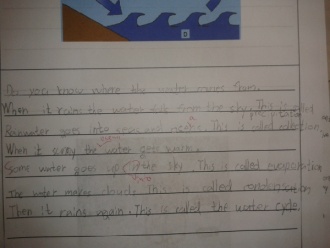 D
Do you know where the water comes from.
When it rains the water fall from the sky. This is called
Rainwater goes into seas and rivers. This is called collection.
When it sunny the water gets
Some water goes up the sky. This is called evaporation
The water makes clouds. This is called condensation
Then it rains again. This is called the water cycle.